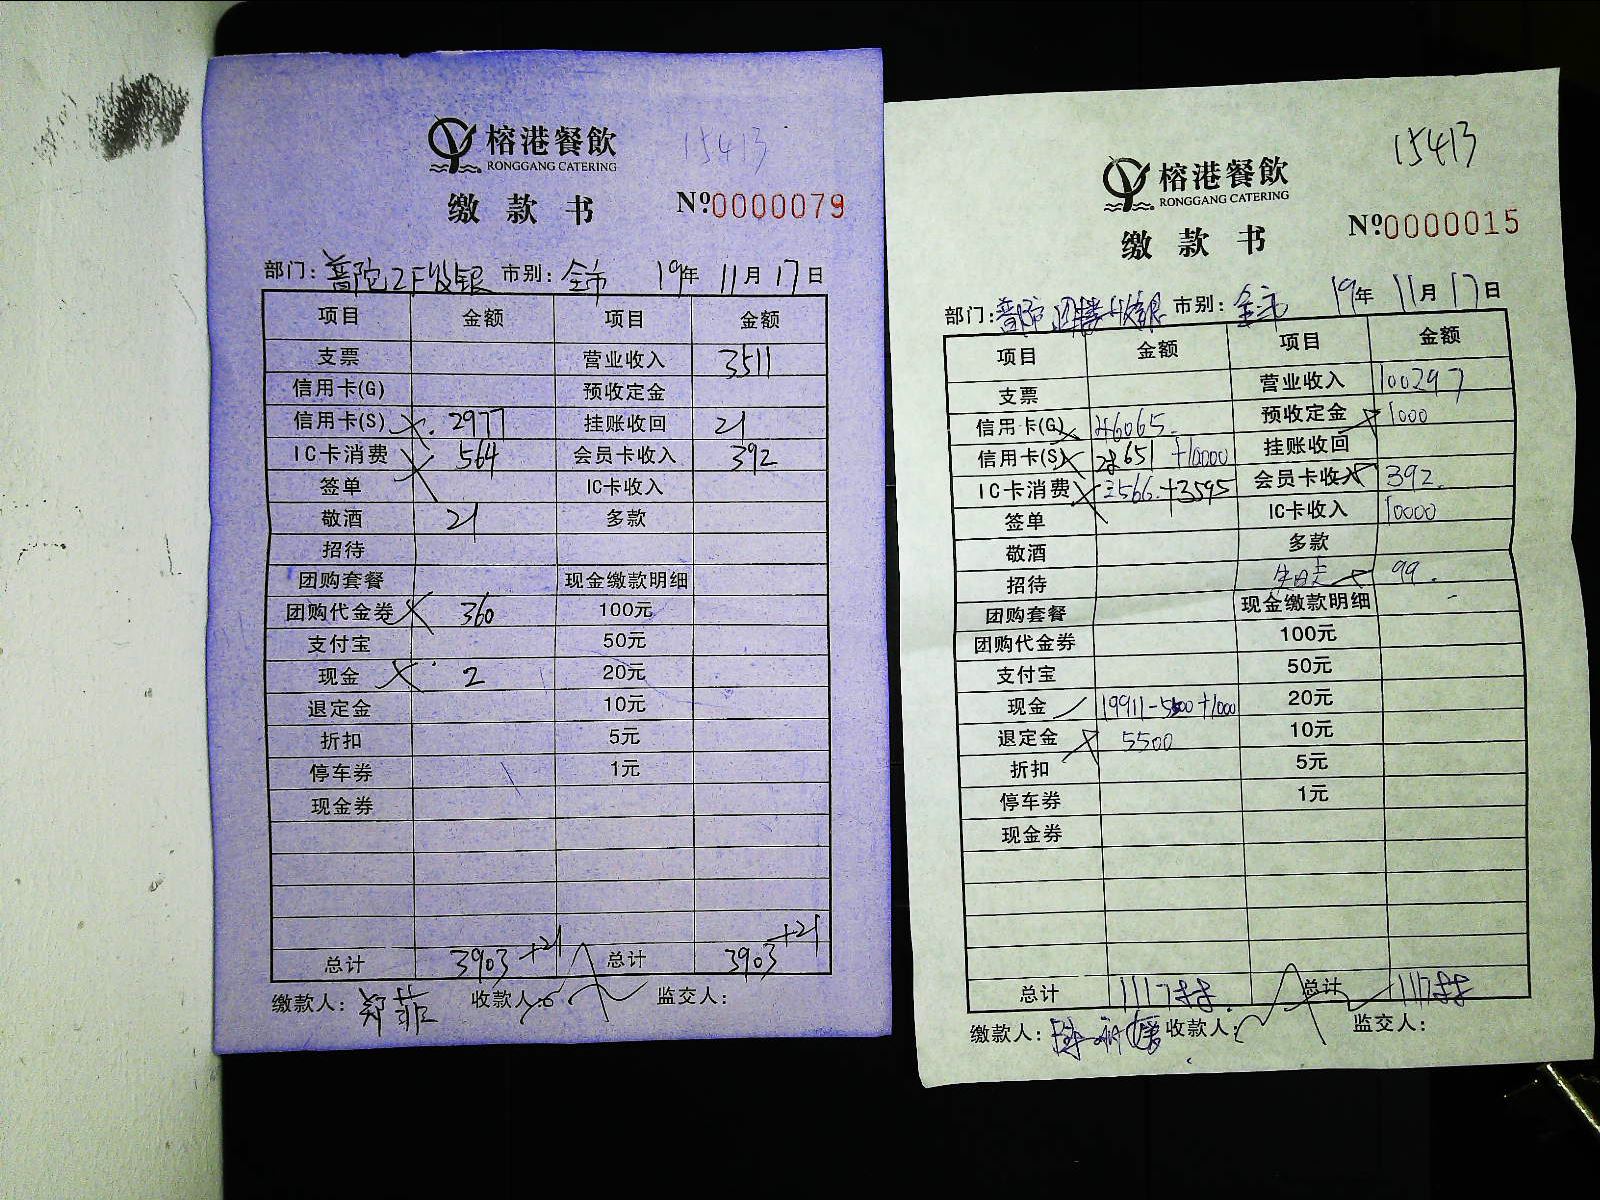 榕港餐飲
RONGGANG CATERING
15413
缴款书
Nº0000079
部门：普陀2F收银 市别：全市 19年 11月 17日
项目 金额 项目 金额
支票 营业收入 3511
信用卡(G) 预收定金
信用卡(S) 2977 挂账收回 21
IC卡消费 564 会员卡收入 392
签单 IC卡收入
敬酒 21 多款
招待
团购套餐 现金缴款明细
团购代金券 360 100元
支付宝 50元
现金 2 20元
退定金 10元
折扣 5元
停车券 1元
现金券
总计 3903+21 总计 3903+21
缴款人：郑菲 收款人： 监交人：
榕港餐飲
RONGGANG CATERING
15413
缴款书
Nº0000015
部门：普陀 收银 市别：全市 19年 11月 17日
项目 金额 项目 金额
支票 营业收入 100297
信用卡(G) 46065 预收定金 1000
信用卡(S) 28651+10000 挂账收回
IC卡消费 2566+3595 会员卡收入 392
签单 IC卡收入 10000
敬酒 多款
招待 99
团购套餐 现金缴款明细
团购代金券 100元
支付宝 50元
现金 19911-5500+1000 20元
退定金 5500 10元
折扣 5元
停车券 1元
现金券
总计 总计
缴款人： 收款人： 监交人：